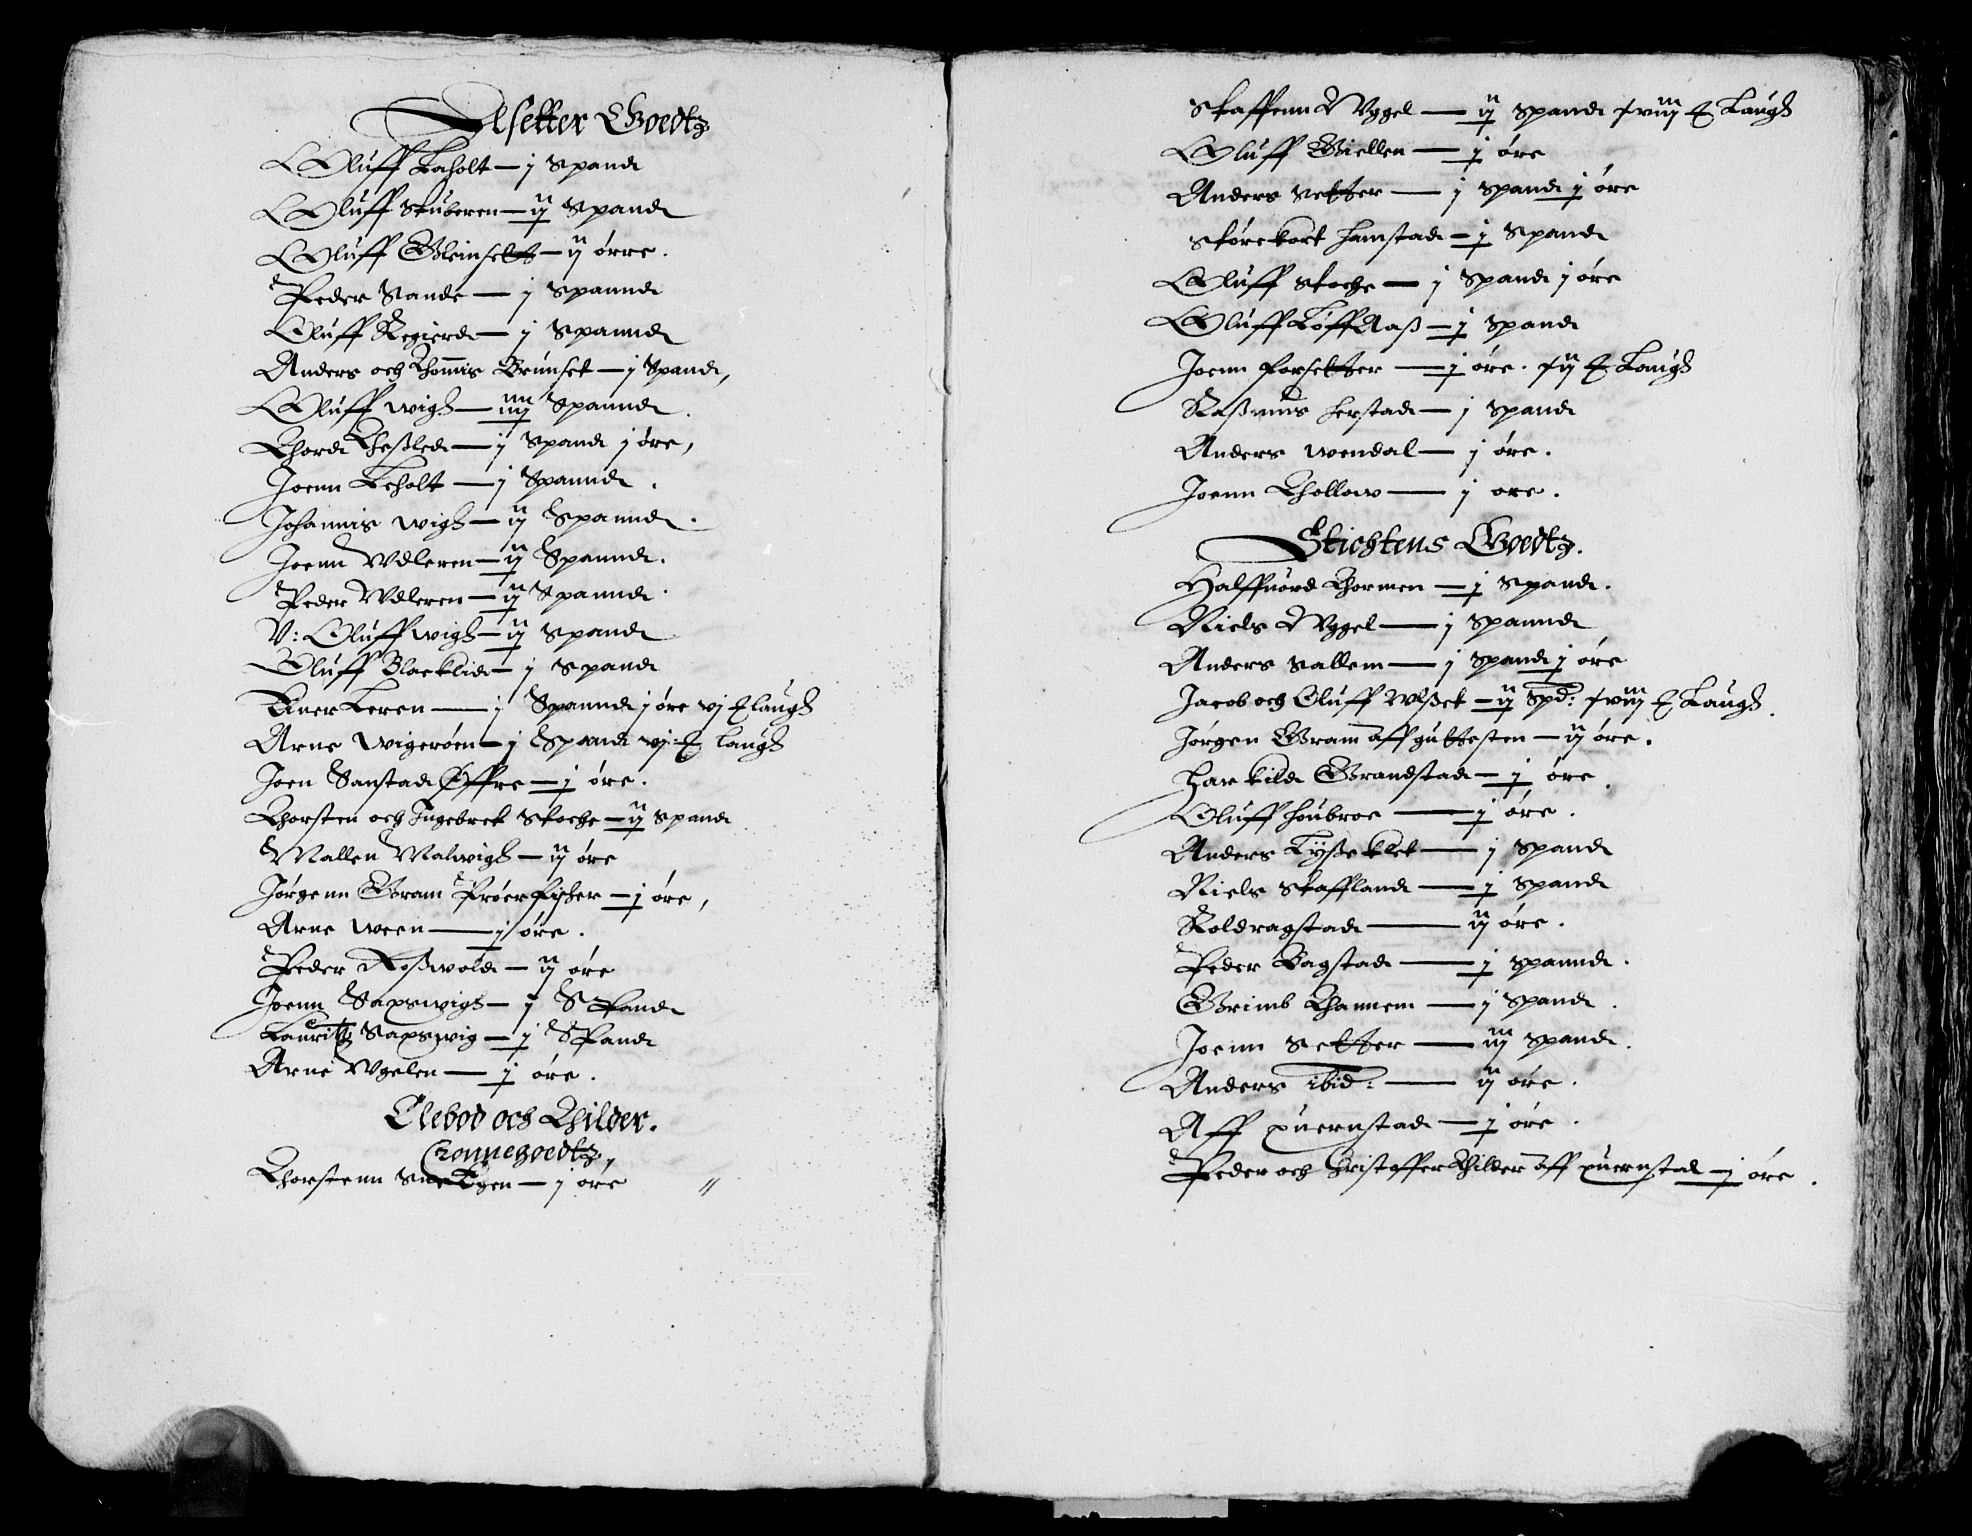 Elsetter Goedtz
Oluff Leholt — j Spand
Oluff Stuberen — ij Spand
Oluff Gleinsett — ij örre.
Peder Sande — j Spannd
Oluff Regierd — j Spannd
Anders och Thommis Grunset — j Spand,
Oluff wigh — iiij Spannd.
Thord Theßled — j Spand j öre,
Joenn Leholt — j Spannd.
Johannis wigh — ij Spannd.
Joenn Wdleren — ij Spannd.
Peder Wdleren — ij Spannd.
V: Oluff wigh — ij Spand
Oluff Blacklid — j Spand
Einer Leren — j Spannd j öre vj laugh
Arne Wigeröen — j Spand vj laugh
Joen Sanstad Öffre — j öre.
Thorsten och Ingebret Stoche — ij Spand
Mallen Malwigh — ij öre
Jörgenn Gram Pröerfisher — j öre,
Arne Ween — j öre.
Peder Roßwold — ij öre
Joenn Saxswigh — j Spand
Lauritz Saxswig — j Spand
Arne Wgelen — j öre.
Clebod och Thilder.
Cronnegoedtz,
Thorstenn — j öre
Staffenn Wggel — ij Spand xviij Laugh
Oluff Giellen — j öre
Anders Setter — j Spand j öre
Störckort hamstad — j Spand
Oluff Stoche — j Spand j öre
Oluff Löffaaß — j Spand
Joenn forsetter — j öre. xij Laugh
Raßmus herstad — j Spand
Anders Wendal — j öre.
Joenn Thollow — j ore.
Stichtens Goedtz.
Halffuord Thormen — j Spand.
Niels Wggel — j Spannd
Anders Sallem — j Spand j öre
Jacob och Oluff Wlßet — ij Spd: xviij Laugh.
Jörgen Gram aff guttesten — ij öre.
Harkild Grandstad — j öre.
Oluff houbroe — j öre.
Anders Tyßeklet — j Spand
Niels Staffland — j Spand
Roldragstad — ij öre.
Peder Bagstad — j Spannd.
Grimb Thannem — j Spand.
Joenn Setter — iij Spand.
Anders ibid: — ij öre.
Aff puernstad — j öre.
Peder och Christoffer Thilder aff puernstad — j öre.